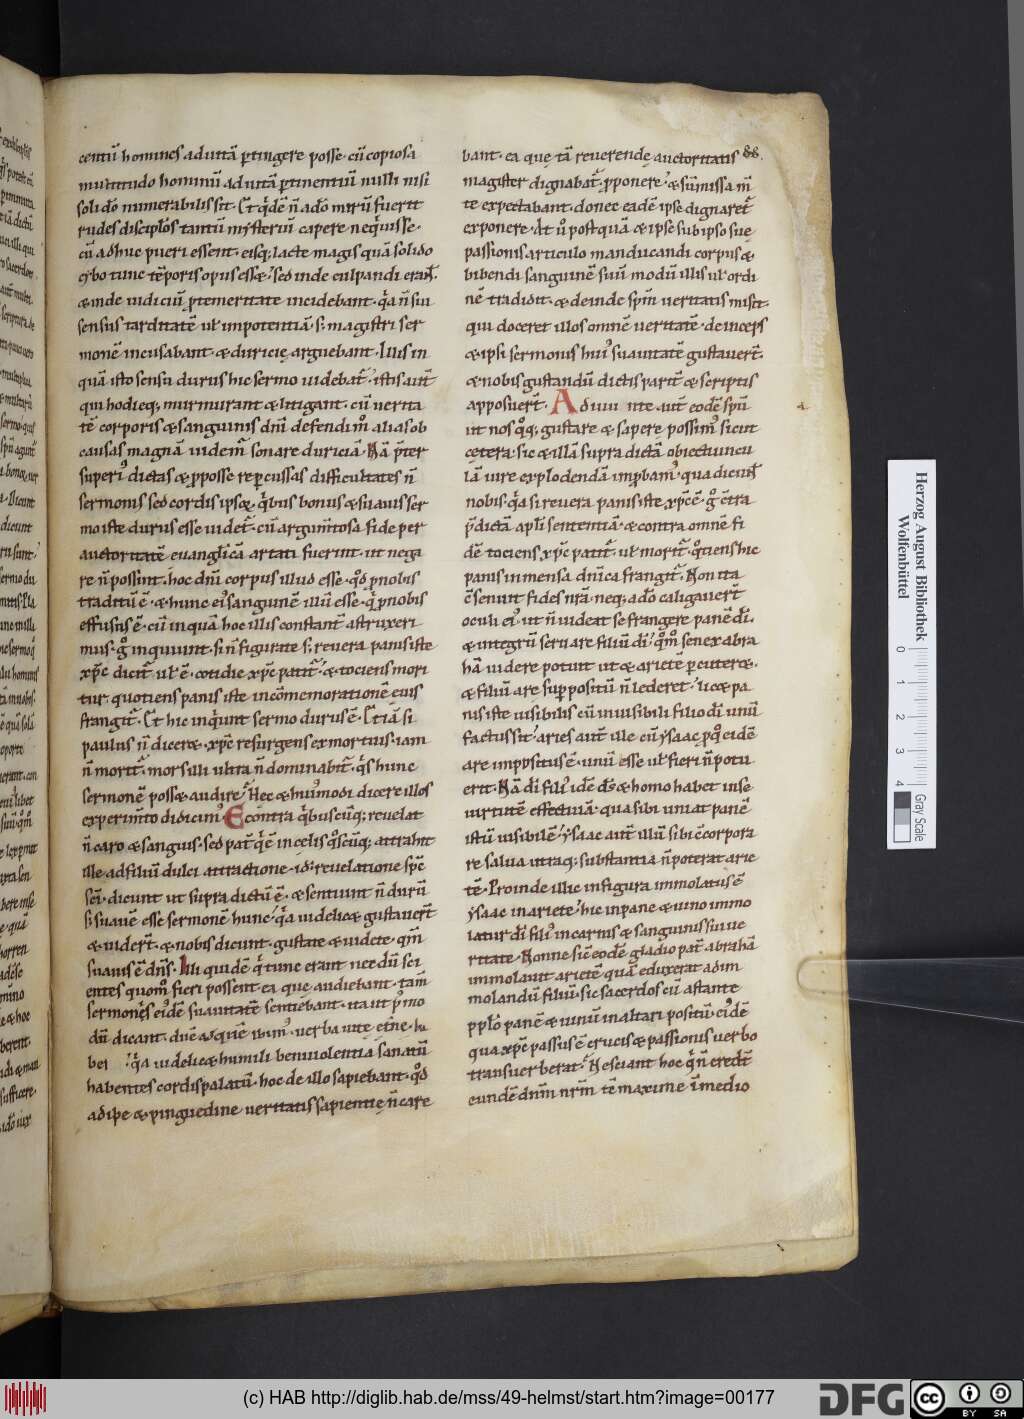 centū homines ad uitā ꝑtingere posse· cū copiosa
multitudo hominū ad uitā ꝑtinentiū nulli nisi
soli dō numerabilis sit. Et qͥdē n̄ adō mirū fuerit
rudes disciplōs tantū mysteriū capere neqͥuisse·
cū adhuc pueri essent· eisq; lacte magis quā solido
cybo tunc tēporis opus eēt
& inde iudiciū ꝑ temeritate incidebant· qͥa n̄ sui
sensus tarditatē ul̄ inpotentiā s; magistri ser
monē incusabant· & duricię arguebant· Illis in
quā isto sensu durus hic sermo uidebat̄· istis aut̄
qui hodieq; murmurant & litigant· cū uerita
tē corporis & sanguinis dnī defendim᷒ alias ob
causas magnā uidem̄ sonare duriciā· Nā p̄ter
superi᷒ dictas & ꝓposse reꝑcussas difficultates n̄
sermonis sed cordis ipsoꝝ· qͥbus bonus & suauis ser
mo iste durus esse uidet̄· cū argum̄tosa fide per
auctoritatē euangl̄icā artati fuerint· ut nega
re n̄ possint· hoc dnī corpus illud esse· qd̄ ꝓ nobis
traditū ē· & hunc ei᷒ sanguinē illū esse· qͥ ꝓ nobis
effusus ē· cū inquā hoc illis constant̄ astruxeri
mus· gͦ inquiunt· si n̄ figurate s; reuera panis iste
xp̄c dicit̄ ul̄ ē· cotidie xp̄c patit̄· & tociens mori
tur· quotiens panis iste in cōmemorationē eius
frangit̄· Et hic inqͥunt sermo durus ē. Etiā si
paulus n̄ diceret· xp̄c resurgens ex mortuis· iam
n̄ morit̄· mors illi ultra n̄ dominabit̄· qͥs hunc
sermonē posset audire? Hęc & hui᷒modi dicere illos
experim̄to didicim᷒. Econtra qͥbuscūq; reuelat
n̄ caro & sanguis· sed pat̄ qͥ ē in celis qͦscūq; attrahit
ille ad filiū dulci attractione· id; reuelatione sp̄c
scī· dicunt ut supra dictū ē· & sentiunt n̄ durū
s; suauē esse sermonē hunc· qͥa uidelicet gustauer̄t
& uider̄t· & nobis dicunt· gustate & uidete· qm̄
suauis ē dn̄s. Illi quidē qͥ tunc erant necdū sci
entes quom̊ fieri possent ea que audiebant· tam̄
sermonis ei᷒dē suauitatē sentiebant· ita ut pͥmo
dū dicant· dn̄e ad quē ibim᷒· uerba uite et̄ne· ha
bes qͥa uidelicet humili beniuolentia sanatū
habentes cordis palatū· hoc de illo sapiebant· qd̄
adipe & pinguedine ueritatis sapientię n̄ care
bant· ea quę tā reuerendę auctoritatis
magister dignabat̄ ꝓponere· & sūmissa m̄
te expectabant· donec eadē ipse dignaret̄
exponere· At ů postquā & ipse sub ipso suę
passionis articulo manducandi corpus &
bibendi sanguinē suū modū illis ul̄ ordi
nē tradidit· & deinde sp̄m ueritatis misit·
qui doceret illos omnē ueritatē· deinceps
& ipsi sermonis hui᷒ suauitatē gustauer̄t·
& nobis gustandū dictis parit̄ & scriptis
apposuer̄t. Adiuu nte aut̄ eodē sp̄u
ut nos qͦq; gustare & sapere possim᷒ sicut
cetera· sic & illā supra dictā obiectiuncu
lā iure explodendā inꝓbam᷒· qua dicunt
nobis· qͥa si reuera panis iste xp̄c ē· gͦ c̄tra
p̄dictā apl̄i sententiā· & contra omnē fi
dē· tociens xp̄c patit̄· ul̄ morit̄· qͦtiens hic
panis in mensa dn̄ica frangit̄· Non ita
ē sentit fides nr̄a· neq; adō caligauer̄t
oculi ei᷒· ut n̄ uideat se frangere panē dī·
& integrū seruare filiū dī· qͦm̊ senex abra
hā uidere potuit ut & arietē ꝑcuteret·
& filiū are suꝑpositū n̄ lederet· licet pa
nis iste uisibilis cū inuisibili filio dī unū
factus sit· aries aut̄ ille cū ysaac ꝑ qͦ eidē
are impositus ē· unū esse ul̄ fieri n̄ potu
erit· Nā dī fili᷒ idē ds̄ & homo habet in se
uirtutē effectiuā· qua sibi uniat panē
istū uisibilē· ysaac aut̄ illū sibi c̄corpora
re salua utraq; substantia n̄ poterat arie
tē· Proinde illic in figura immolatus ē
ysaac in ariete· hic in pane & uino immo
latur dī fili᷒ in carnis & sanguinis sui ue
ritate· Nonne sic̄ eodē gladio pat̄ abrahā
immolauit arietē quā eduxerat ad im
molandū filiū· sic sacerdos cū astante
pplō panē & uinū in altari positū· ei᷒dē
qua xp̄c passus ē crucis & passionis uerbo
transuerberat· Nesciant hoc qͥ n̄ credt̄
eundē dn̄m nr̄m tē maxime ī medio
Herzog August Bibliothek
Wolfenbüttel
0 1 2 3 4
Gray Scale
(c) HAB http://diglib.hab.de/mss/49-helmst/start.htm?image=00177
DFG
cc BY SA